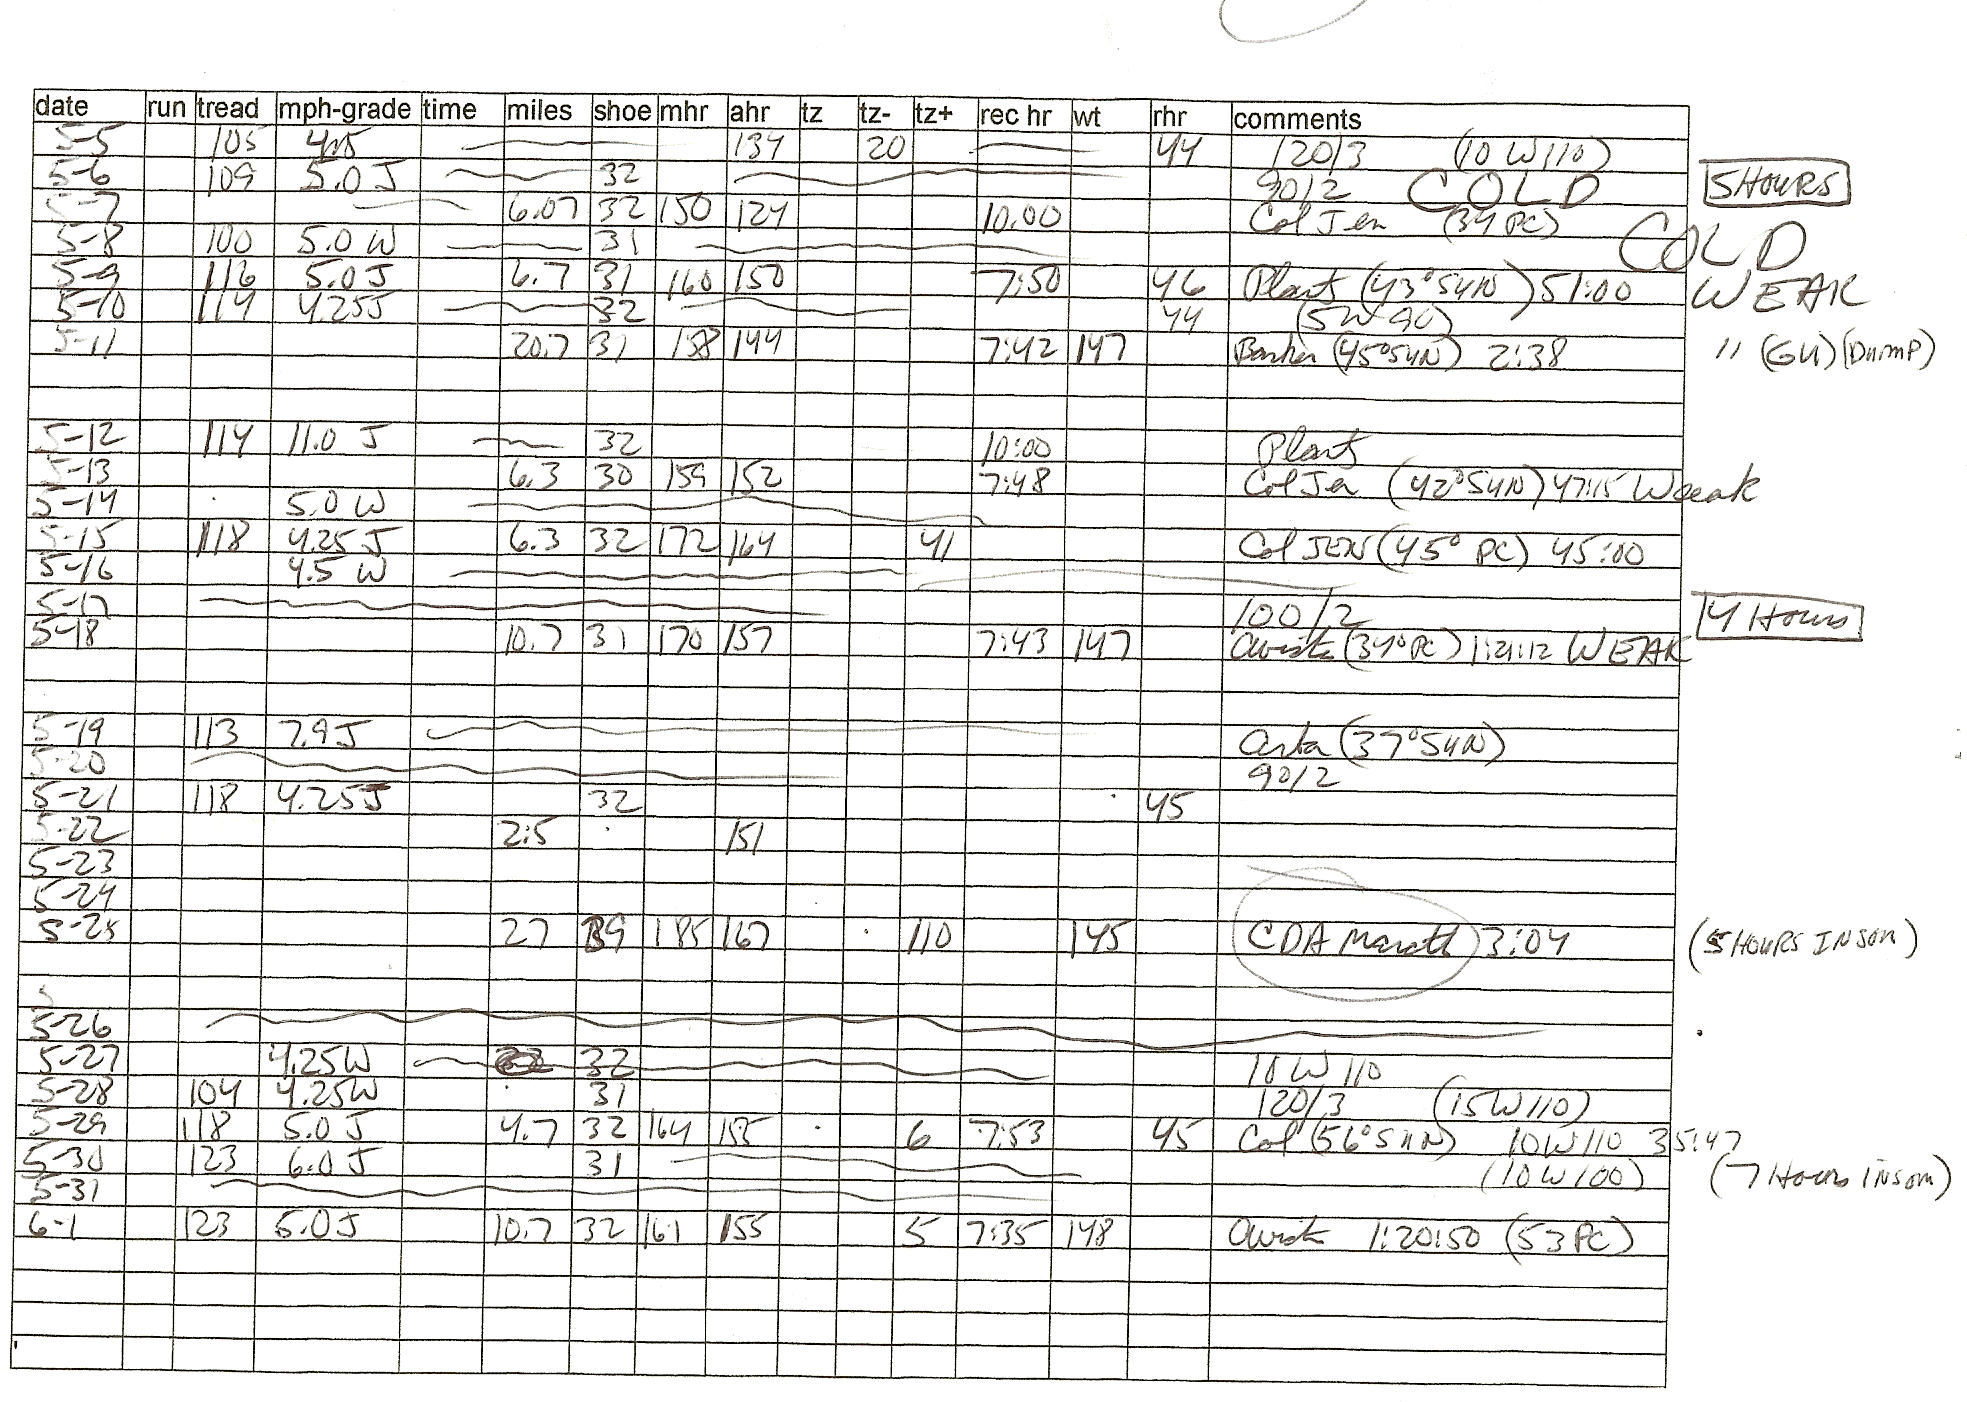 date run tread mph-grade time miles shoe mhr ahr tz tz- tz+ rec hr wt rhr comments
5-5 105 134 20 44 120/3 (10 W 110)
5-6 109 5.0 J 32 90/2 COLD 5 HOURS
5-7 6.07 32 150 124 10:00 Col Jen (34 PC) COLD
5-8 100 5.0 W 31
5-9 116 5.0 J 6.7 31 160 150 7:50 46 Plants (43° SUN) 51:00 WEAK
5-10 114 4.25J 32 44 (5W 90)
5-11 20.7 31 158 144 7:42 147 (45° SUN) 2:38 " (GU) (DUMP)
5-12 114 11.0 J 32 10:00 Plants
5-13 6.3 30 159 152 7:48 Col Jen (42° SUN) 47:15 Weeak
5-14 5.0 W
5-15 118 4.25 J 6.3 32 172 164 41 Col JEN (45° PC) 45:00
5-16 4.5 W
5-17 100/2 4 Hours
5-18 10.7 31 170 157 7:43 147 (34° PC) 1:21:12 WEAK
5-19 113 7.9 J (37° SUN)
5-20 90/2
5-21 118 4.25J 32 45
5-22 2:5 151
5-23
5-24
5-25 27 39 185 167 110 145 CDA Marath 3:04 (5 HOURS INSOM)
5
5-26
5-27 4.25W 32 10 W 110
5-28 104 4.25W 31 120/3 (15W110)
5-29 118 5.0 J 4.7 32 164 155 6 7:53 45 Col (56° SUN) 10W110 35:47
5-30 123 6.0 J 31 (10 W 100) (7 Hours INSOM)
5-31
6-1 123 6.0J 10.7 32 161 155 5 7:35 148 1:20:50 (53 PC)